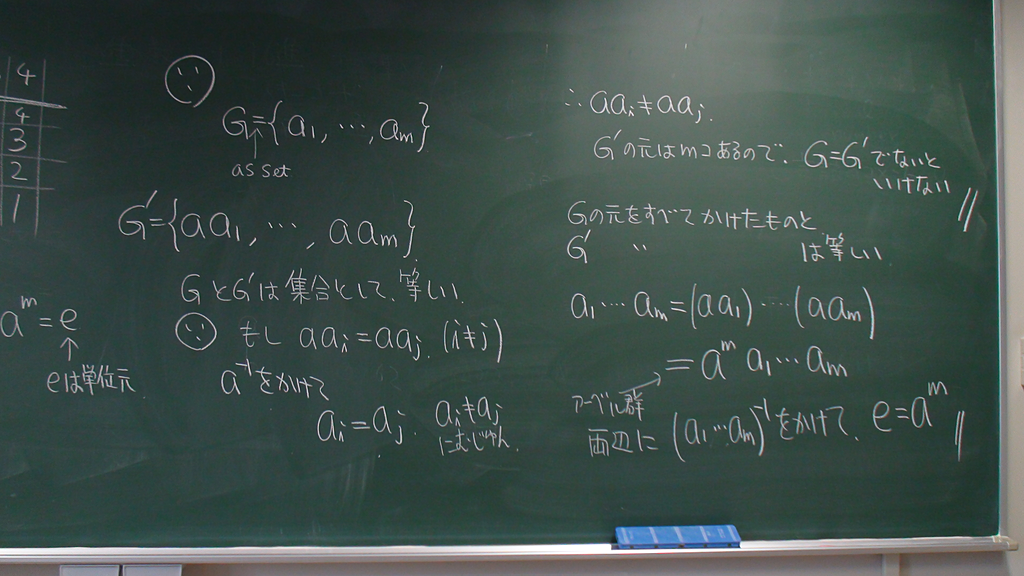 4
4
3
2
1
a^m = e
↑
eは単位元
G = {a₁, …, aₘ}
↑
as set
G' = {aa₁, …, aaₘ}
GとG'は集合として、等しい.
もし aaᵢ = aaⱼ (i≠j)
a⁻¹をかけて
aᵢ = aⱼ. aᵢ≠aⱼ
にむじゅん.
∴ aaᵢ ≠ aaⱼ.
G'の元はmコあるので、G=G'でないと
いけない //
Gの元をすべてかけたものと
G' 〃 は等しい
a₁…aₘ = (aa₁)…(aaₘ)
= a^m a₁…aₘ
アーベル群
両辺に (a₁…aₘ)⁻¹をかけて、e = a^m //